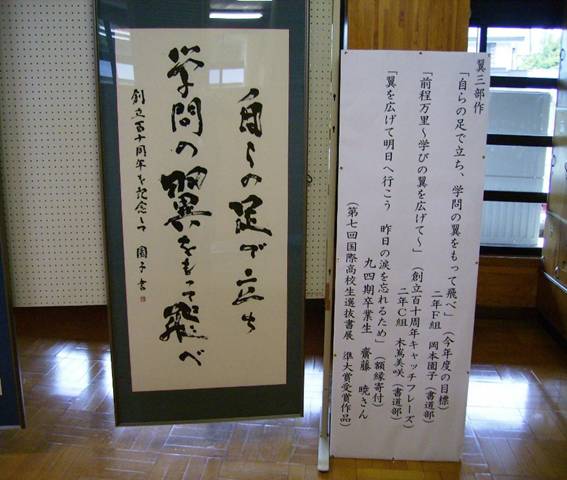 自らの足で立ち
学問の翼をもって飛べ
創立百十周年を記念して 園子書
翼三部作
「自らの足で立ち、学問の翼をもって飛べ」（今年度の目標）
二年F組 岡本園子（書道部）
「前程万里～学びの翼を広げて～」（創立百十周年キャッチフレーズ）
二年C組 木嶌美咲（書道部）
「翼を広げて明日へ行こう 昨日の涙を忘れるため」（額縁寄付）
九四期卒業生 齋藤 暁さん
（第七回国際高校生選抜書展 準大賞受賞作品）